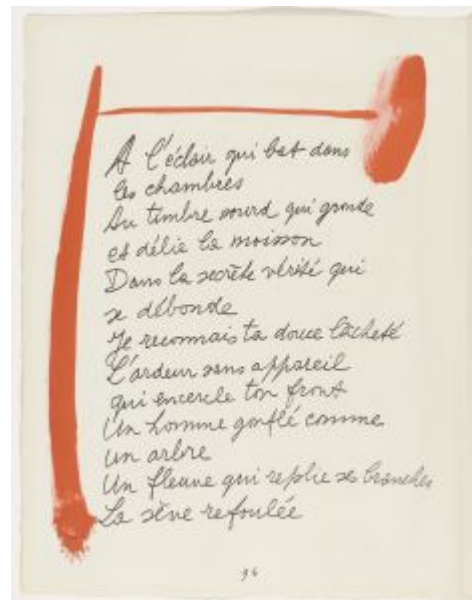 A l'éclair qui bat dans
les chambres
Au timbre sourd qui gronde
et délie la moisson
Dans la secrète vérité qui
se débonde
Je reconnais ta douce lâcheté
L'ardeur sans appareil
qui encercle ton front
Un homme gonflé comme
un arbre
Un fleuve qui replie ses branches
La sève refoulée
96